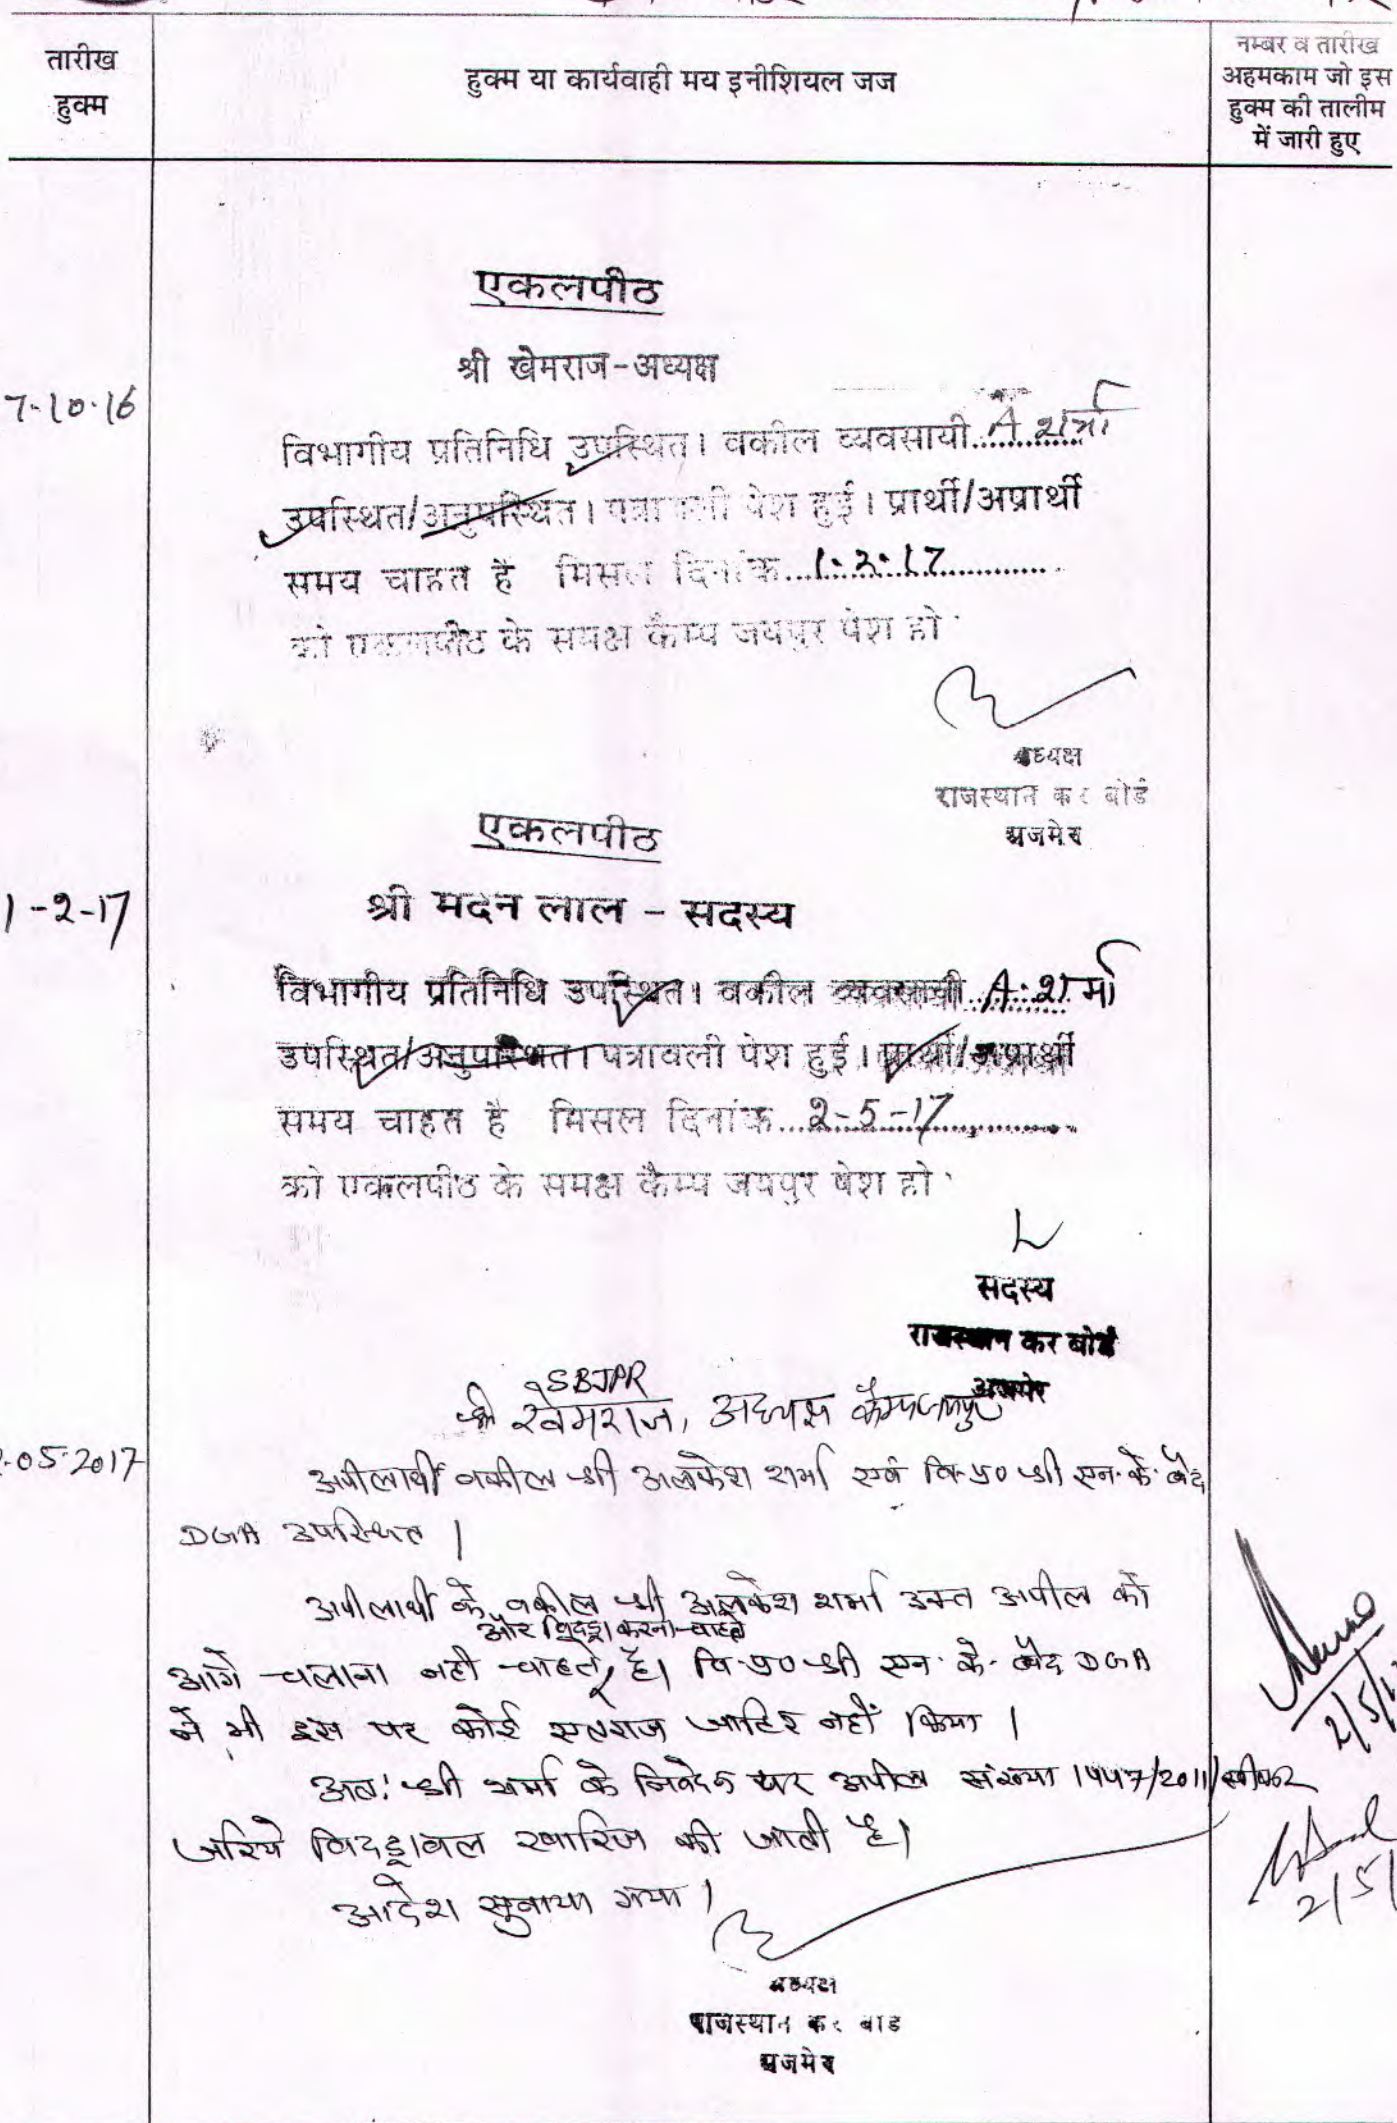 तारीख
हुक्म
हुक्म या कार्यवाही मय इनीशियल जज
नम्बर व तारीख
अहमकाम जो इस
हुक्म की तालीम
में जारी हुए
एकलपीठ
श्री खेमराज-अध्यक्ष
7-10-16
विभागीय प्रतिनिधि उपस्थित। वकील व्यवसायी A शर्मा
उपस्थित/अनुपस्थित। पत्रावली पेश हुई। प्रार्थी/अप्रार्थी
समय चाहत है मिसल दिनांक 1-2-17
को एकलपीठ के समक्ष कैम्प जयपुर पेश हो
अध्यक्ष
राजस्थान कर बोर्ड
अजमेर
एकलपीठ
1-2-17
श्री मदन लाल - सदस्य
विभागीय प्रतिनिधि उपस्थित। वकील व्यवसायी A. शर्मा
उपस्थित/अनुपस्थित। पत्रावली पेश हुई। प्रार्थी/अप्रार्थी
समय चाहत है मिसल दिनांक 2-5-17
को एकलपीठ के समक्ष कैम्प जयपुर पेश हो
सदस्य
राजस्थान कर बोर्ड
अजमेर
SBJPR
श्री खेमराज, अध्यक्ष कैम्प जयपुर
-05-2017
अपीलार्थी वकील श्री अलकेश शर्मा एवं वि.प्र० श्री एन. के. बैद
DGA उपस्थित |
अपीलार्थी के वकील श्री अलकेश शर्मा उक्त अपील को
और विदड्रा करना चाहते
आगे चलाना नहीं चाहते है। वि.प्र० श्री एन. के. बैद DGA
ने भी इस पर कोई एतराज जाहिर नहीं किया |
अतः श्री शर्मा के निवेदन पर अपील संख्या 1447/2011/सीकर
जरिये विदड्रावल खारिज की जाती है।
आदेश सुनाया गया।
2/5/1
2/5/
अध्यक्ष
राजस्थान कर बोर्ड
अजमेर